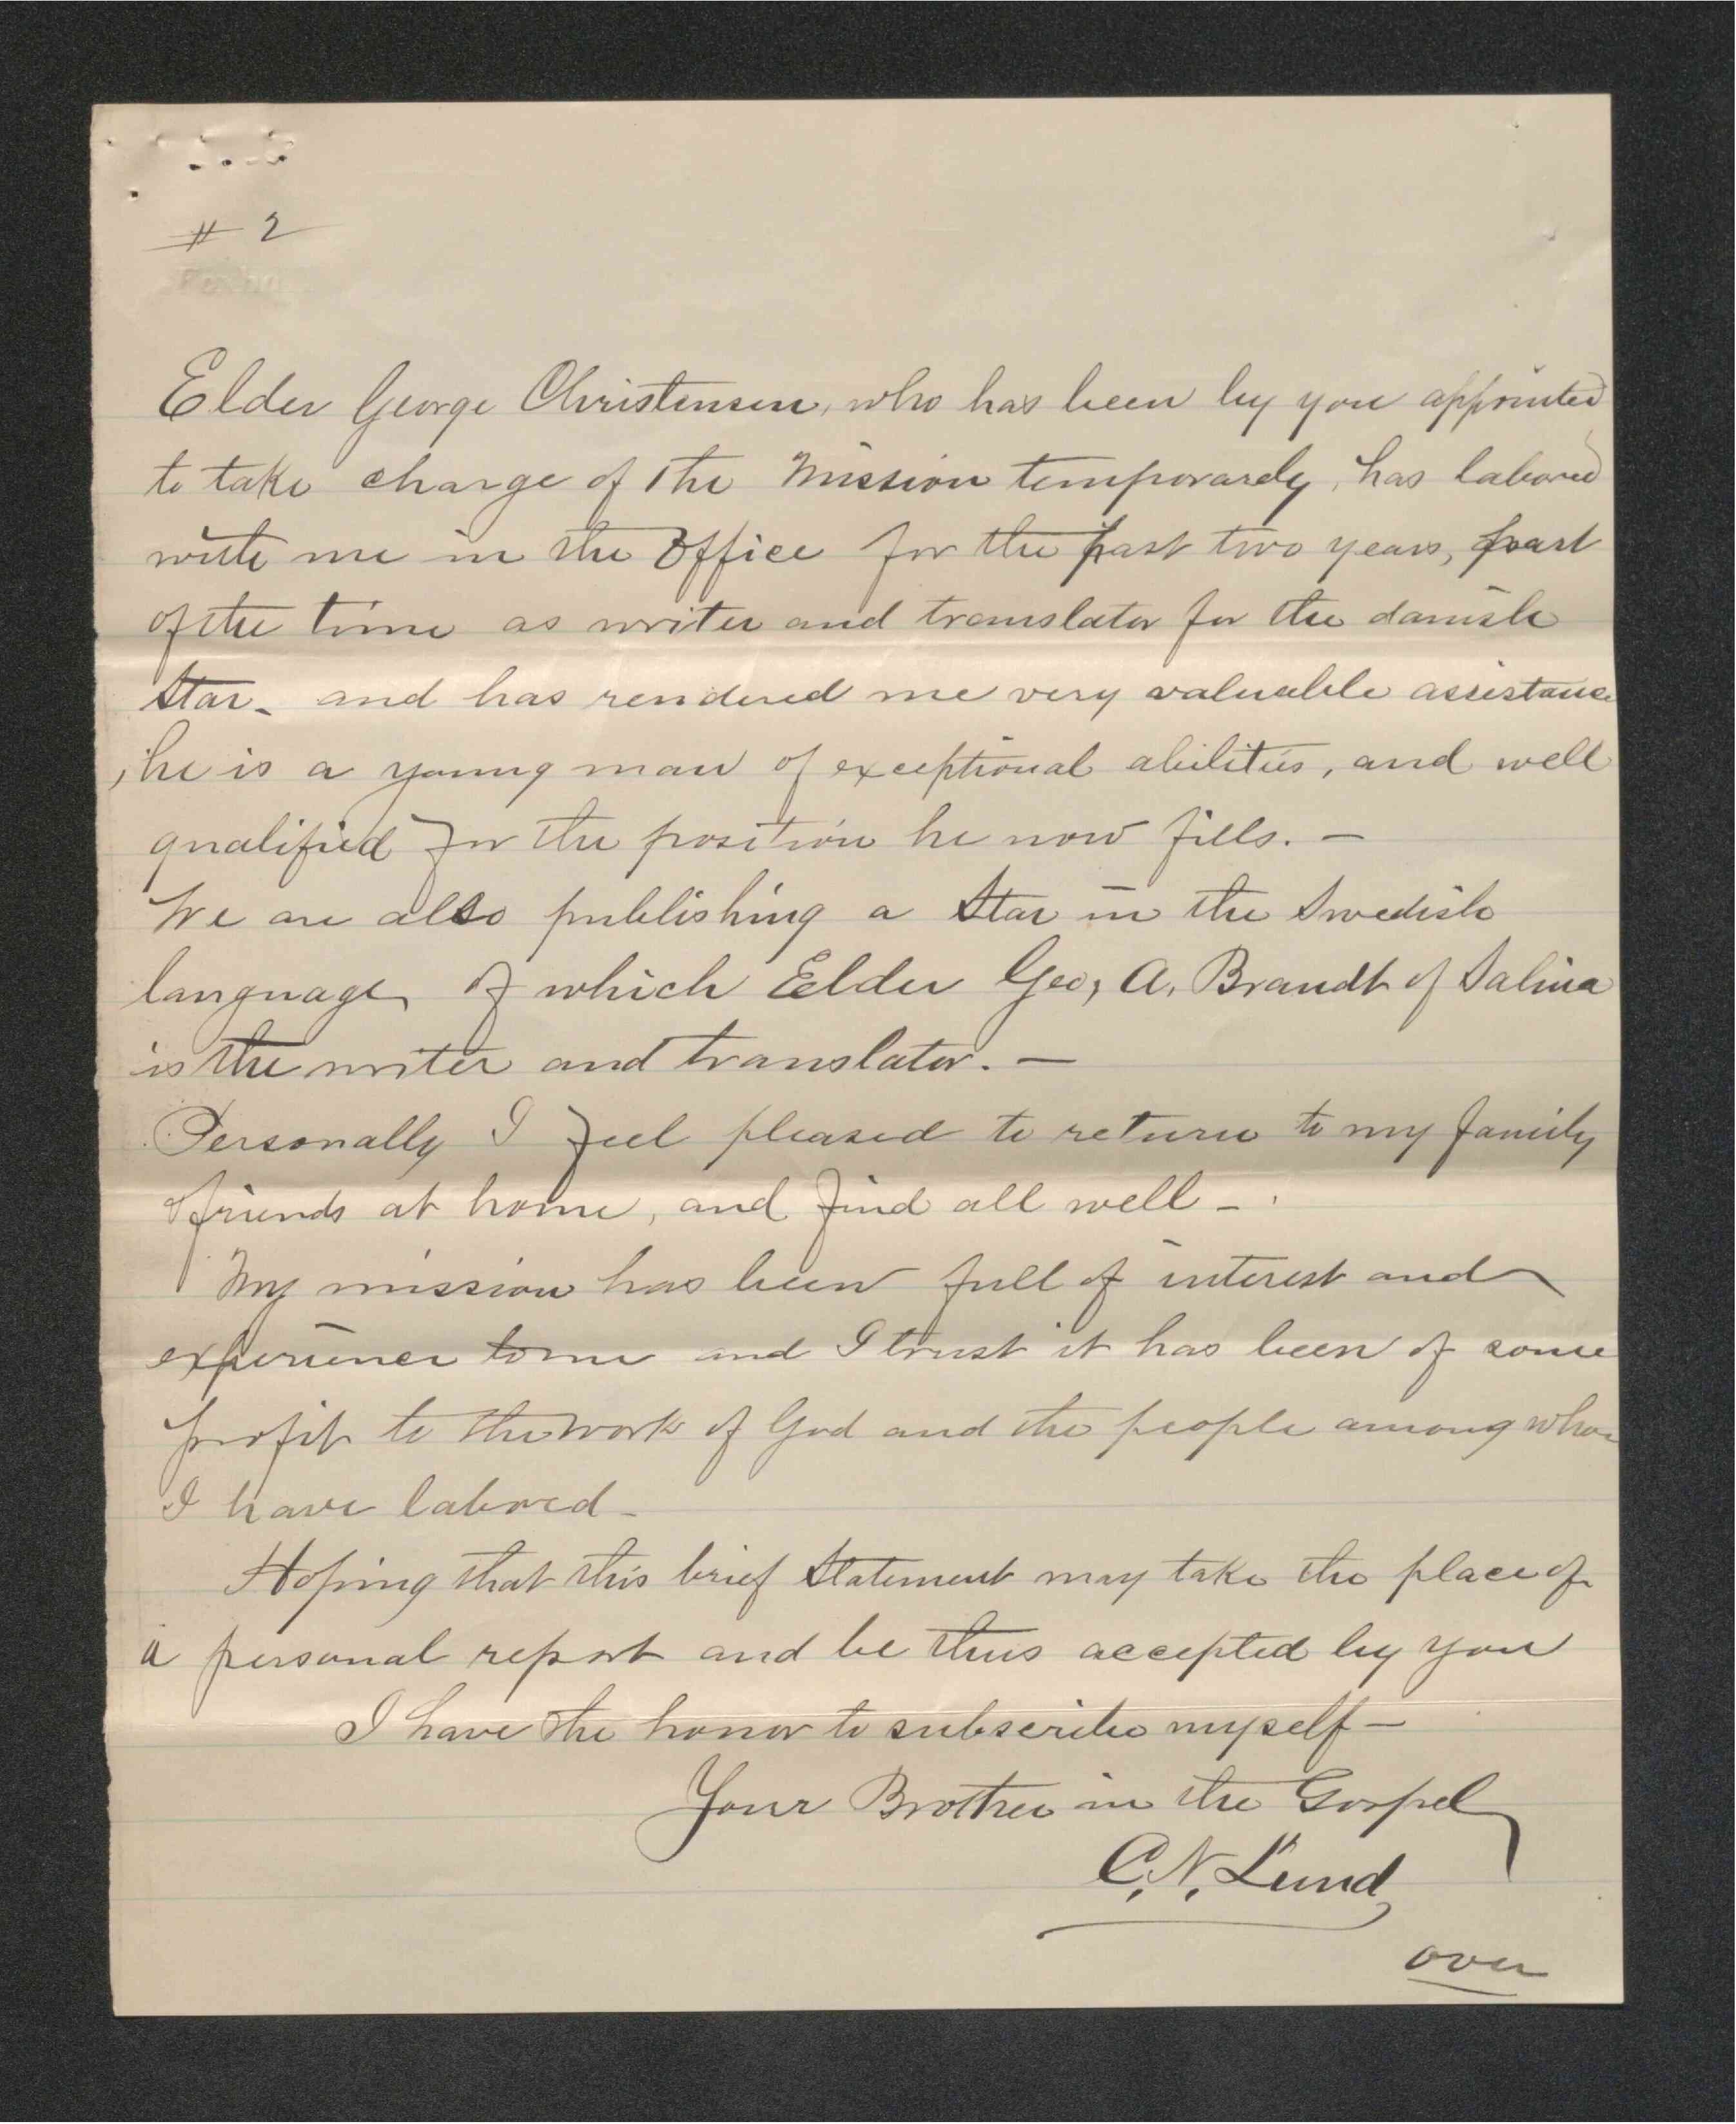 # 2
Elder George Christensen, who has been by you appointed
to take charge of the Mission temporardy, has labored
with me in the Office for the past two years, part
of the time as writer and translator for the danish
Star - and has rendered me very valuable assistance
, he is a young man of exceptional abilities, and well
qualified for the position he now fills. -
We are also publishing a Star in the Swedish
language, of which Elder Geo, A. Brandt of Salina
is the writer and translator. -
Personally I feel pleased to return to my family
& friends at home, and find all well -
My mission has been full of interest and
experience to me and I trust it has been of some
profit to the work of God and the people among whom
I have labored -
Hoping that this brief Statement may take the place of
a personal report and be thus accepted by you
I have the honor to subscribe myself -
Your Brother in the Gospel
C. N. Lund
over